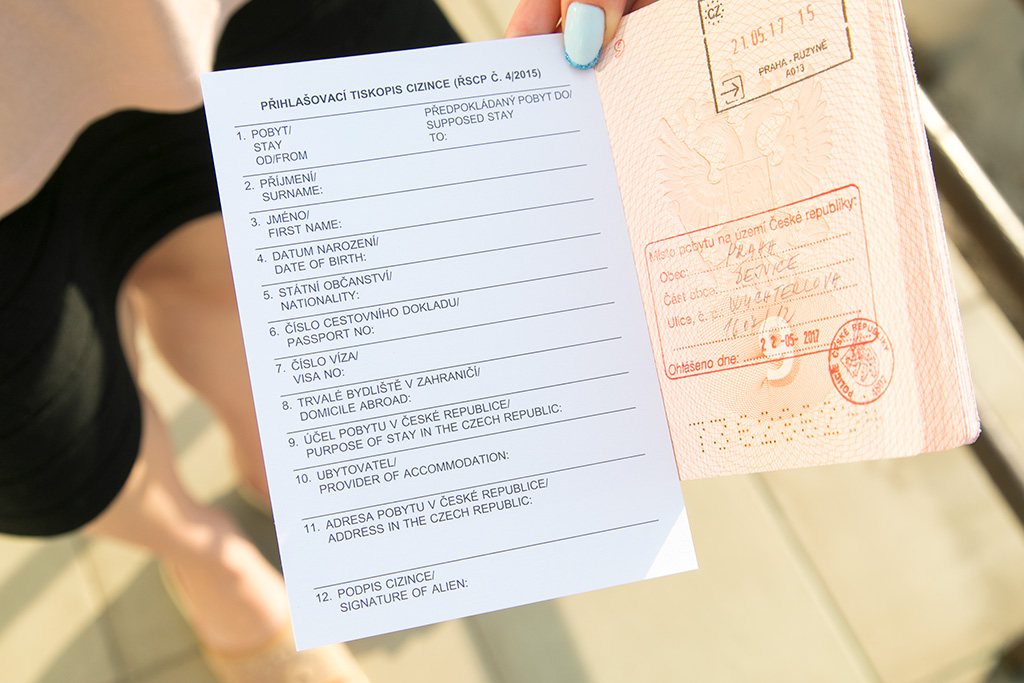 PŘIHLAŠOVACÍ TISKOPIS CIZINCE (ŘSCP Č. 4/2015)
1. POBYT/
STAY
OD/FROM
PŘEDPOKLÁDANÝ POBYT DO/
SUPPOSED STAY
TO:
2. PŘÍJMENÍ/
SURNAME:
3. JMÉNO/
FIRST NAME:
4. DATUM NAROZENÍ/
DATE OF BIRTH:
5. STÁTNÍ OBČANSTVÍ/
NATIONALITY:
6. ČÍSLO CESTOVNÍHO DOKLADU/
PASSPORT NO:
7. ČÍSLO VÍZA/
VISA NO:
8. TRVALÉ BYDLIŠTĚ V ZAHRANIČÍ/
DOMICILE ABROAD:
9. ÚČEL POBYTU V ČESKÉ REPUBLICE/
PURPOSE OF STAY IN THE CZECH REPUBLIC:
10. UBYTOVATEL/
PROVIDER OF ACCOMMODATION:
11. ADRESA POBYTU V ČESKÉ REPUBLICE/
ADDRESS IN THE CZECH REPUBLIC:
12. PODPIS CIZINCE/
SIGNATURE OF ALIEN:
CZ
21.05.17 15
PRAHA - RUZYNĚ
A013
Místo pobytu na území České republiky:
Obec: PRAHA
Část obce: DEJVICE
Ulice, č. p. WYCHTERLOVA
Ohlášeno dne: 22-05-2017
POLICIE ČESKÉ REPUBLIKY
9